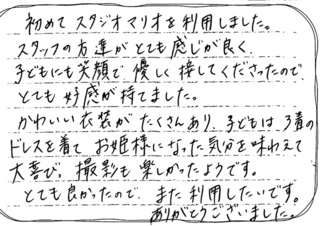 初めて スタジオマリオを利用しました。
スタッフの方達が とても 感じが良く、
子どもにも笑顔で 優しく 接してくださったので
とても 好感が持てました。
かわいい衣装が たくさんあり、子どもは 3着の
ドレスを着て お姫様になった気分を味わえて
大喜び。撮影も 楽しかったようです。
とても良かったので、また利用したいです。
ありがとうございました。